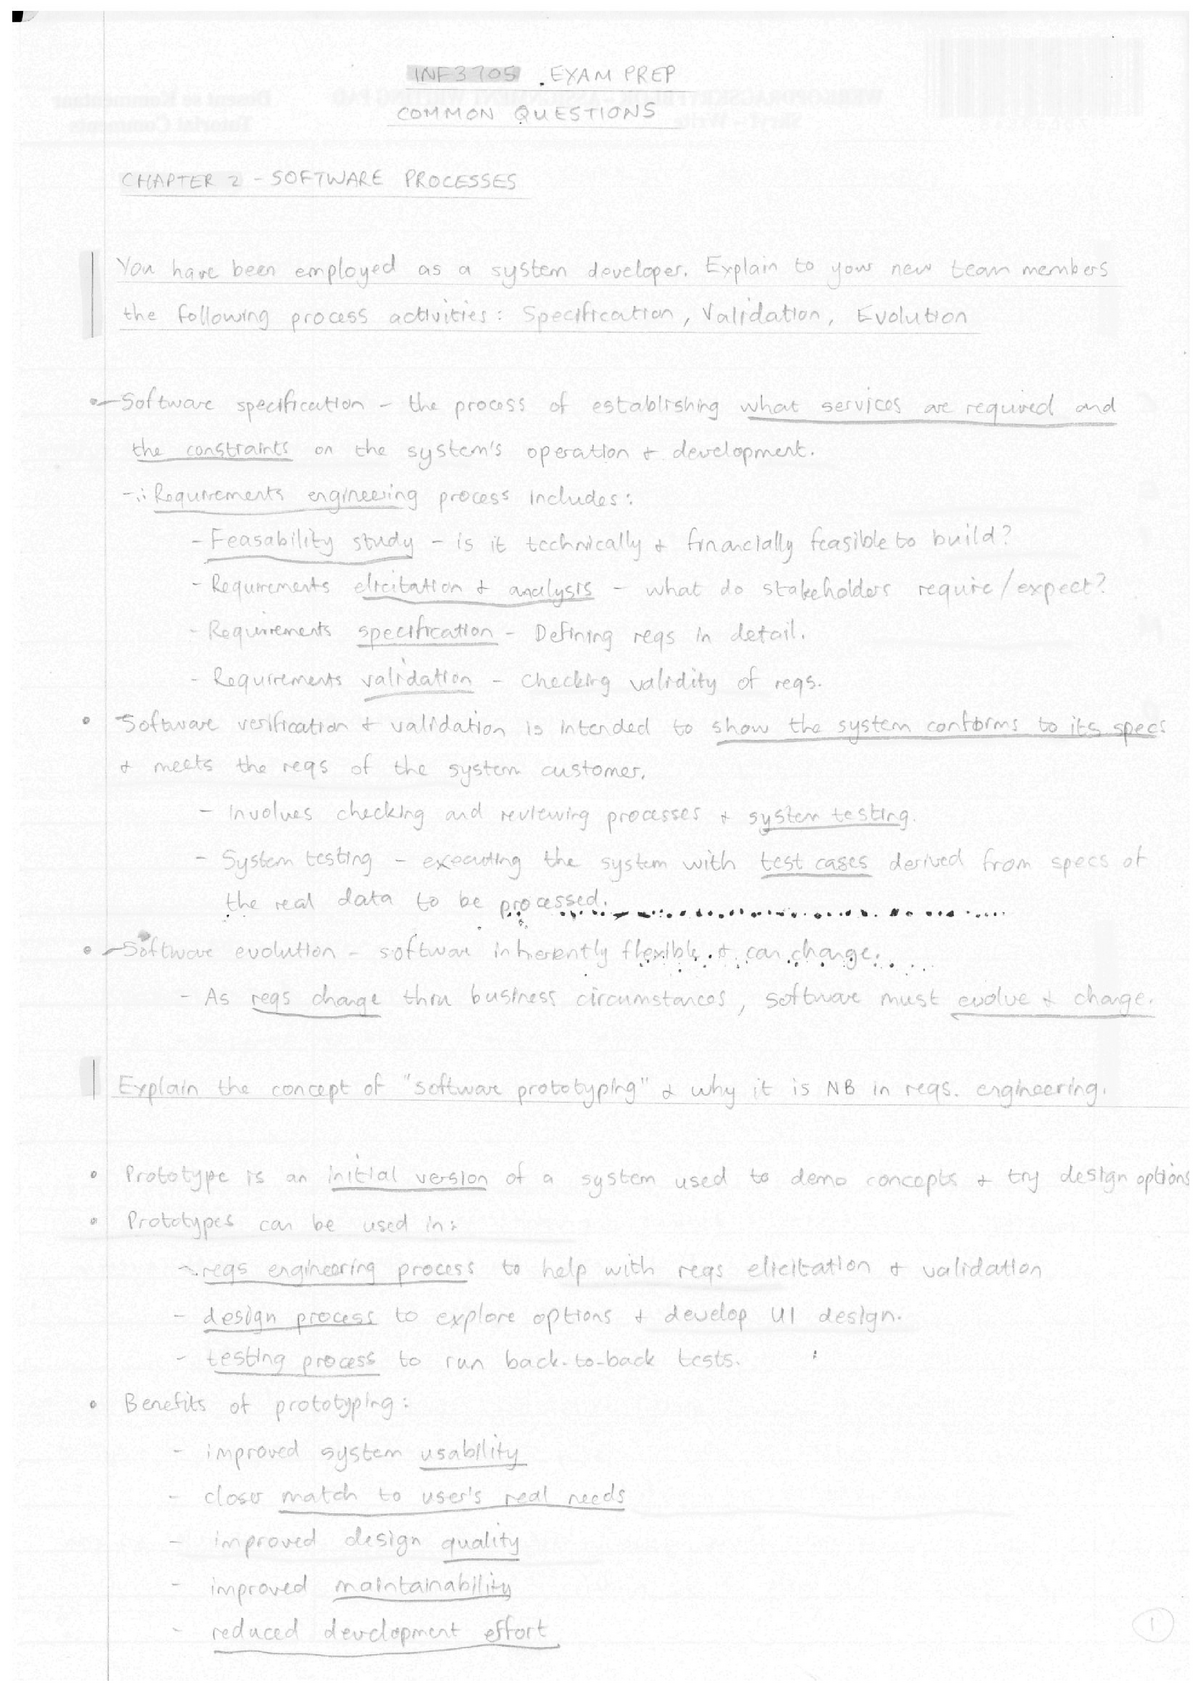 INF3705 EXAM PREP
COMMON QUESTIONS
CHAPTER 2 - SOFTWARE PROCESSES
You have been employed as a system developer. Explain to your new team members
the following process activities: Specification, Validation, Evolution
• Software specification - the process of establishing what services are required and
the constraints on the system's operation & development.
- ∴ Requirements engineering process includes:
- Feasability study - is it technically & financially feasible to build?
- Requirements elicitation & analysis - what do stakeholders require/expect?
- Requirements specification - Defining reqs in detail.
- Requirements validation - checking validity of reqs.
• Software verification & validation is intended to show the system conforms to its specs
& meets the reqs of the system customer.
- Involves checking and reviewing processes & system testing.
- System testing - executing the system with test cases derived from specs of
the real data to be processed.
• Software evolution - software inherently flexible & can change.
- As reqs change thru business circumstances, software must evolve & change.
Explain the concept of "software prototyping" & why it is NB in reqs. engineering.
• Prototype is an initial version of a system used to demo concepts & try design options
• Prototypes can be used in:
- reqs engineering process to help with reqs elicitation & validation
- design process to explore options & develop UI design.
- testing process to run back-to-back tests.
• Benefits of prototyping:
- improved system usability
- closer match to user's real needs
- improved design quality
- improved maintainability
- reduced development effort
1